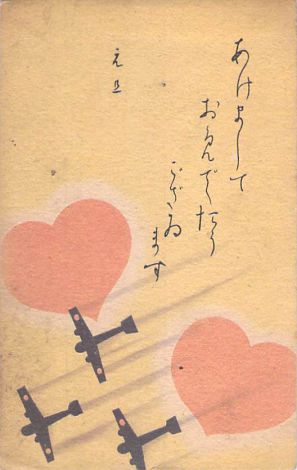 あけまして
おめでたう
ござゐ
ます
元旦